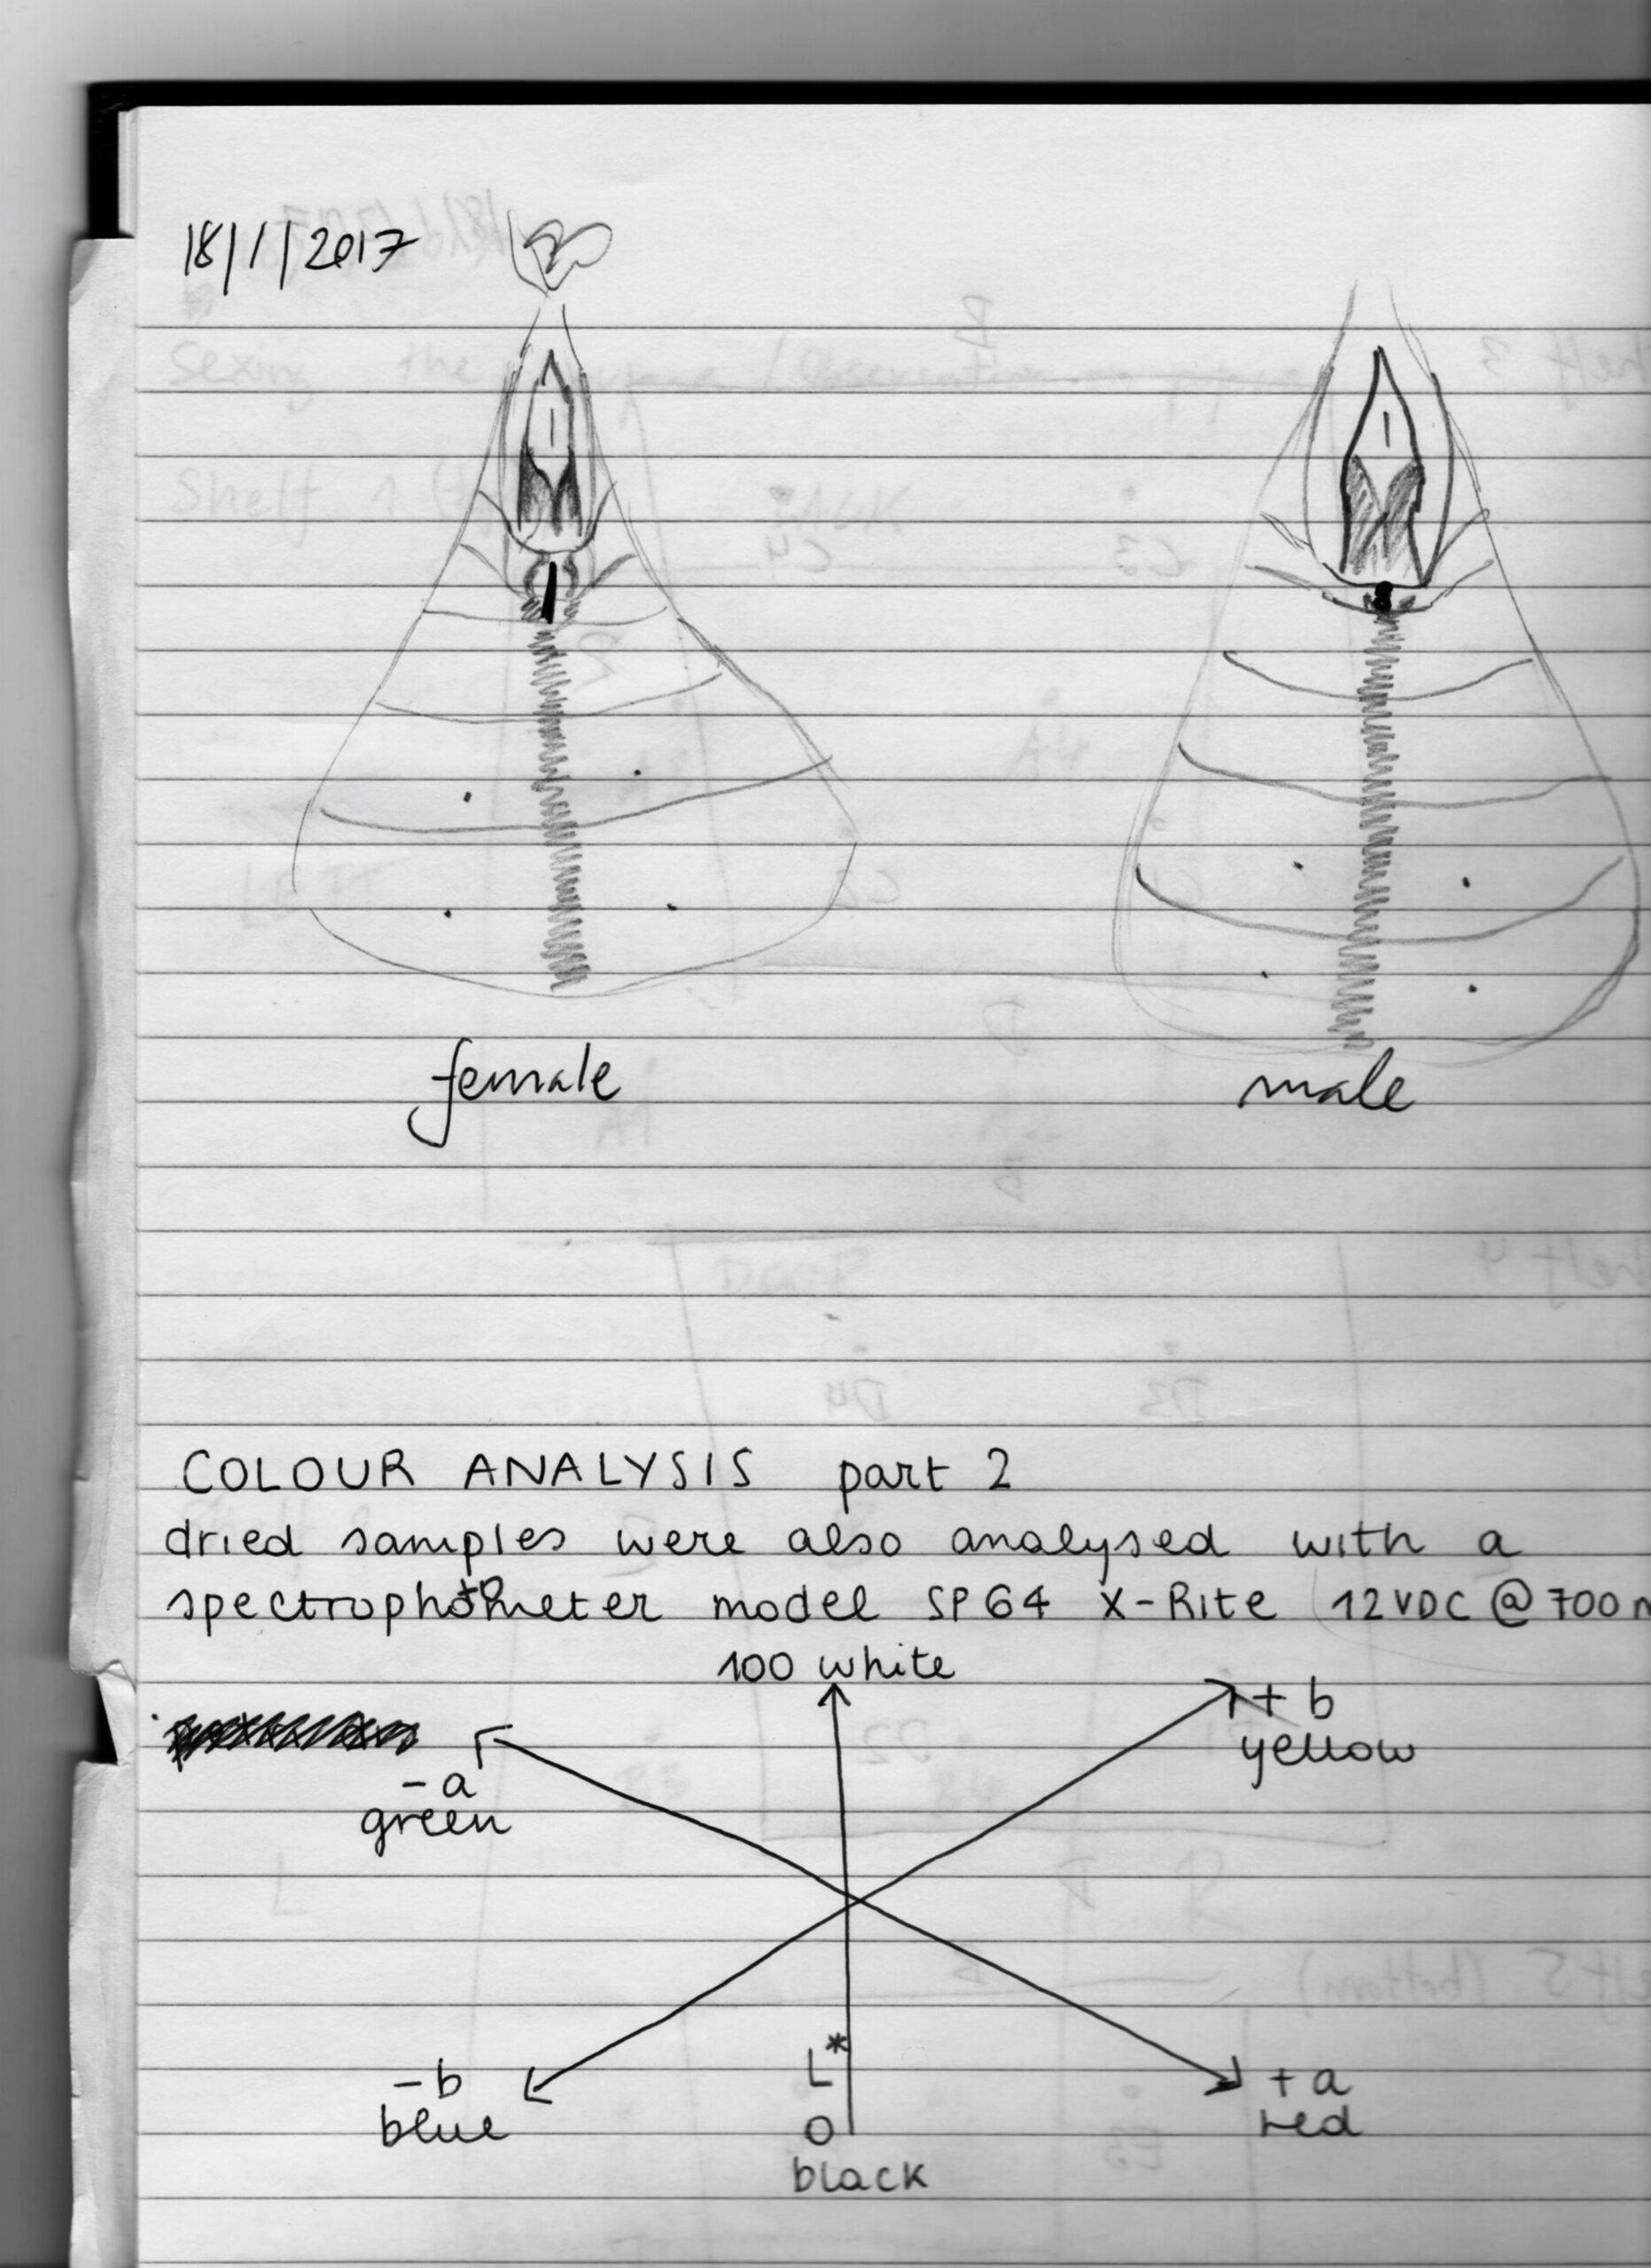 18/1/2017
female
male
COLOUR ANALYSIS part 2
dried samples were also analysed with a
spectrophotometer model SP64 X-Rite 12VDC @ 700
100 white
+ b
yellow
- a
green
- b
blue
L*
0
black
+ a
red